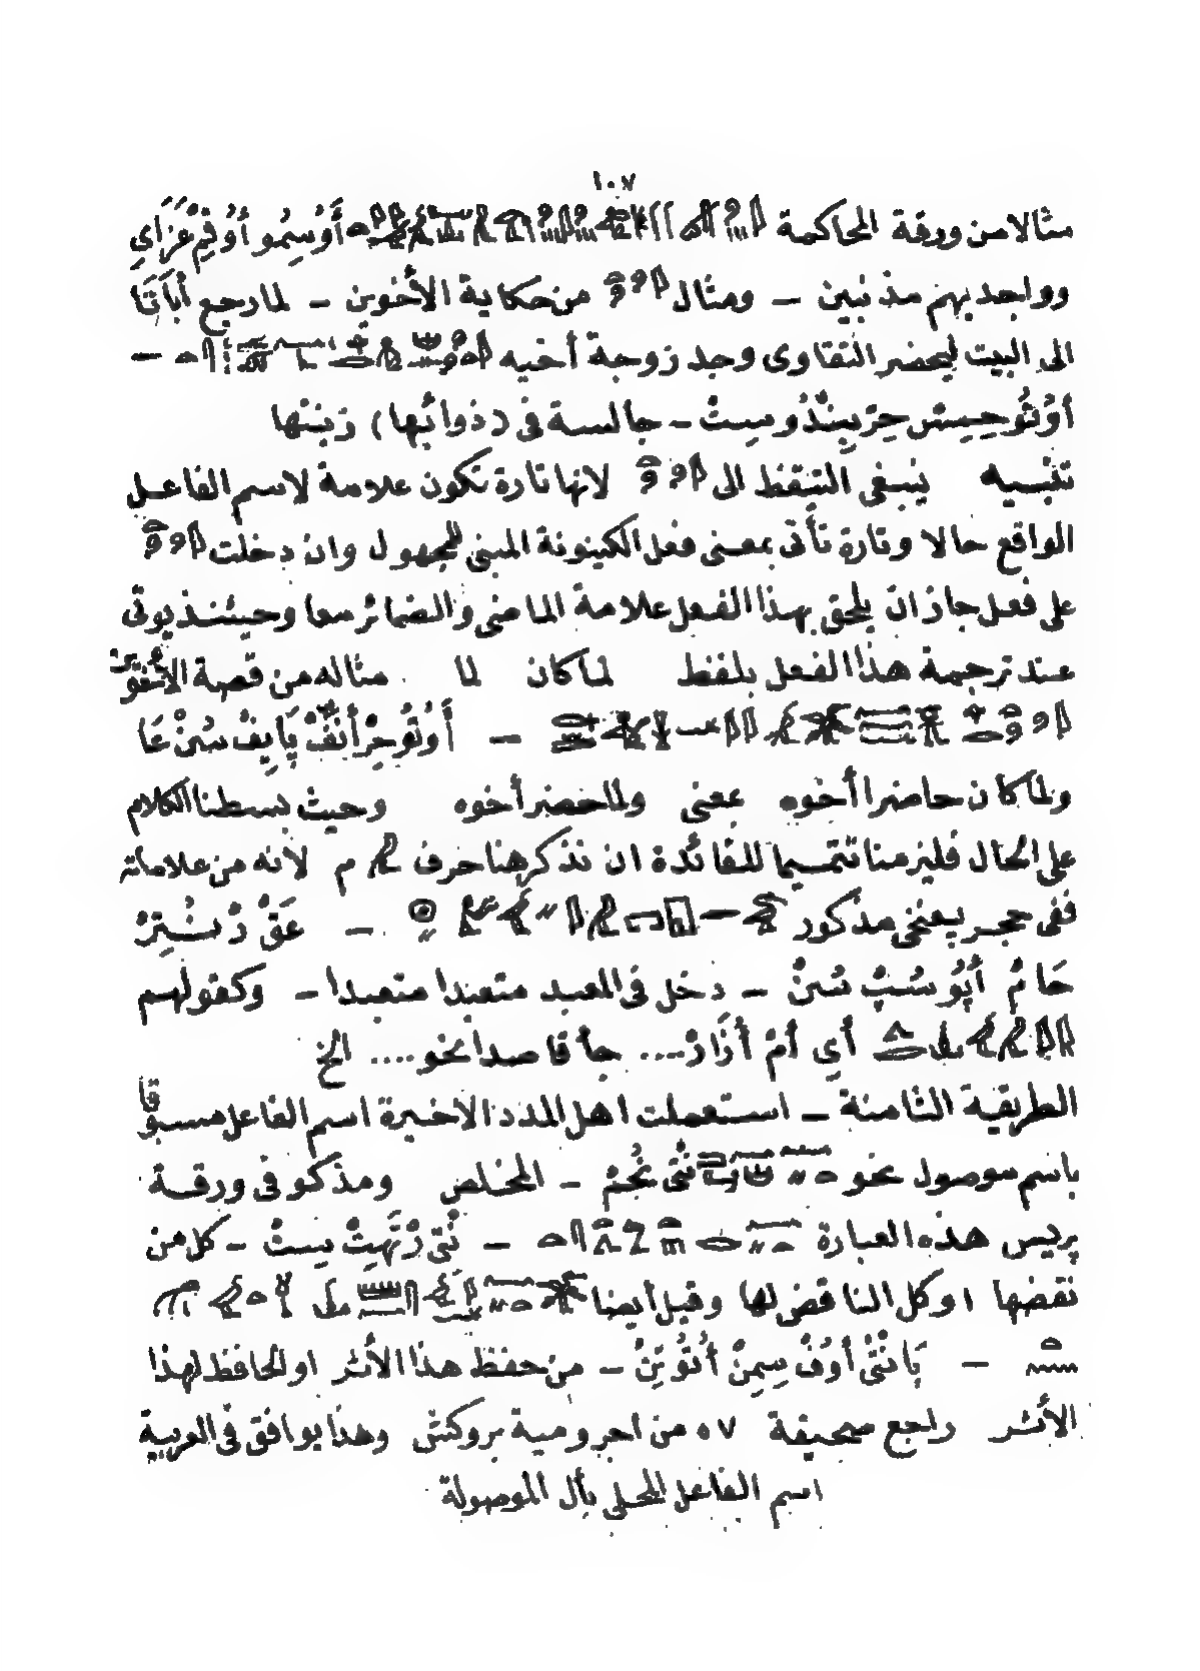 ١٠٧
مثالا من ورقة المحاكمة أَوُسِمُو أوُقِمْ عَزَايِ
وواجد بهم مذنبين — ومثال من حكاية الأخوين — لما رجع أَبَاتَا
الى البيت ليحضر التقاوى وجد زوجة أخيه —
أوُتُوحِسِسْ حِرْ نِبِدُوسِتْ — جالسة فى (ذوائبها) زينتها
تنبيه ينبغى التيقظ الى لانها تارة تكون علامة لاسم الفاعل
الواقع حالا وتارة تأتى بمعنى فعل الكينونة المبنى للمجهول وان دخلت
على فعل جاز ان يلحق بهذا الفعل علامة الماضى والضمائر معا وحينئذ يوتى
عند ترجمة هذا الفعل بلفظ لما كان لما مثاله من قصة الأخوين
— أَوُتُوحِرْ أنَفْ پَايِفْ سُنْ عَا
ولما كان حاضرا أخوه بمعنى ولما حضر أخوه وحيث بسطنا الكلام
على الحال فليزمنا تتميما للفائدة ان نذكر هنا حرف م لانه من علاماته
ففى حجر بعنخى مذكور — عَقْ رْ نُتِرْ
حَا مْ أَپُو سُپْ سُنْ — دخل فى المعبد متعبدا متعبدا — وكقولهم
أَىِ أمْ أزَارْ.... جأ قاصدا نحو .... الخ
الطريقة الثامنة — استعملت اهل المدد الاخيرة اسم الفاعل مسبوقا
باسم موصول نحو نْتى نُحُمْ — المخلص ومذكو فى ورقة
پريس هذه العبارة — نْتِى رْتَهِتْ سِتْ — كل من
نقضها اوكل الناقض لها وقيل أيضا
— پَا نْتْى أوُفْ سِمِنْ أُتُو پِنْ — من حفظ هذا الأثر او الحافظ لهذا
الأثر راجع صحيفة ٥٧ من اجرومية بروكش وهذا يوافق فى العربية
اسم الفاعل المحلى بأل الموصولة